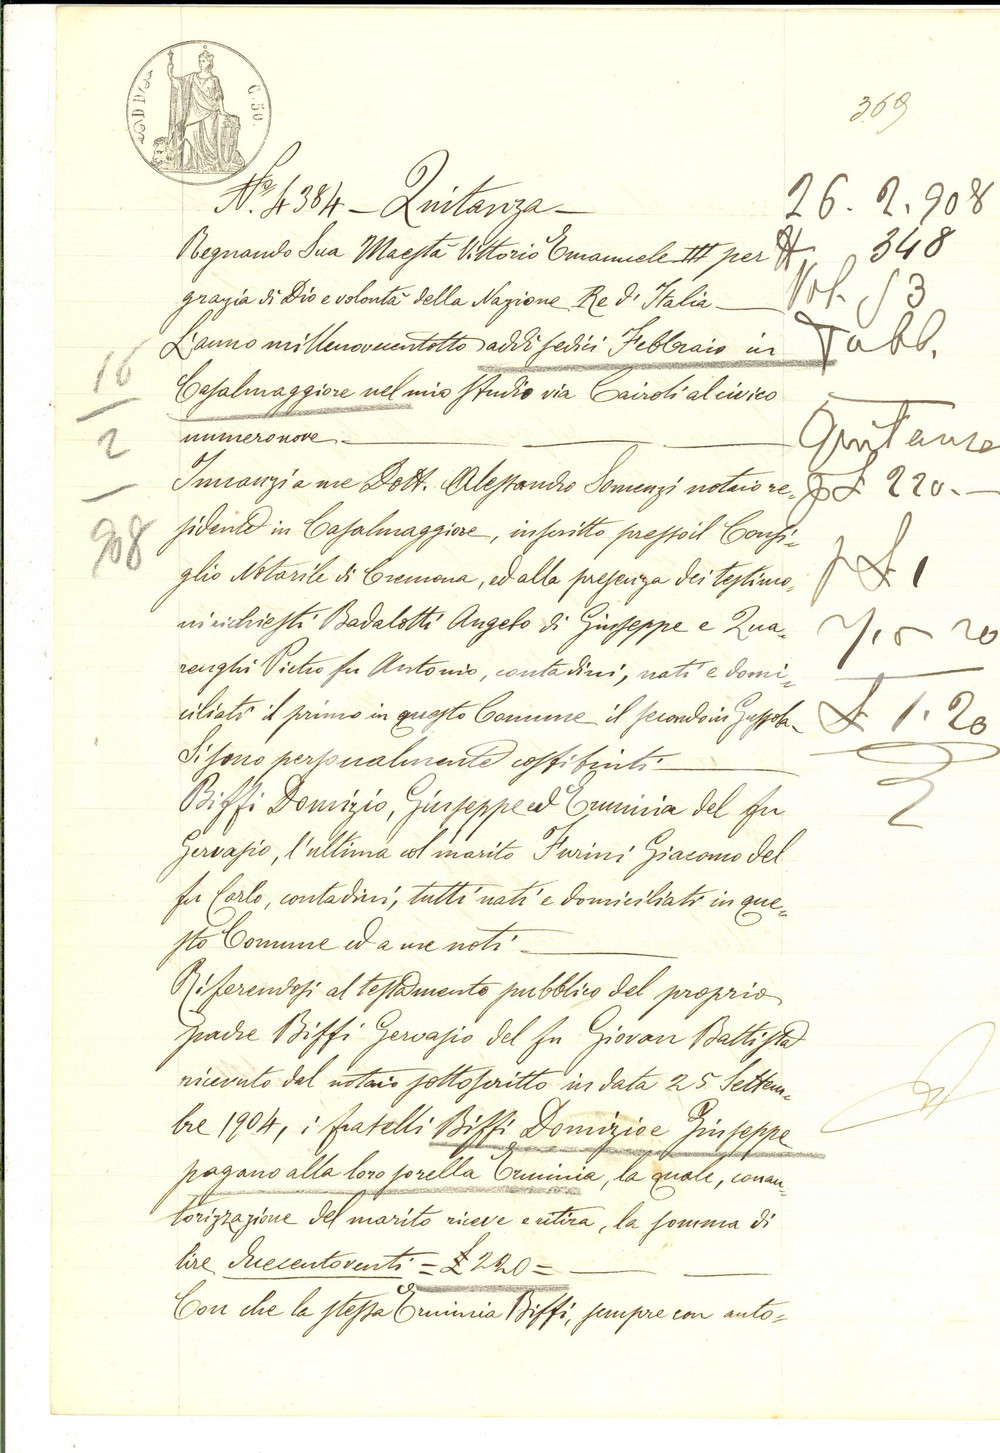 C. 50.
369
N.º 4384 - Quitanza -
Regnando Sua Maestà Vittorio Emanuele III per
grazia di Dio e volontà della Nazione Re d'Italia
L'anno millenovecentotto addì sedici Febbraio in
Casalmaggiore nel mio studio via Cairoli al civico
numero nove.
Innanzi a me Dott. Alessandro Somenzi notaio re=
sidente in Casalmaggiore, inscritto presso il Consi=
glio Notarile di Cremona, ed alla presenza dei testimo=
ni richiesti Badalotti Angelo di Giuseppe e Qua=
renghi Pietro fu Antonio, contadini, nati e domi=
ciliati il primo in questo Comune il secondo in Gussola.
Si sono personalmente costituiti
Biffi Domizio, Giuseppe ed Erminia del fu
Gervasio, l'ultima col marito Furini Giacomo del
fu Carlo, contadini, tutti nati e domiciliati in que=
sto Comune ed a me noti.
Riferendosi al testamento pubblico del proprio
padre Biffi Gervasio del fu Giovan Battista
ricevuto dal notaio sottoscritto in data 25 Settem=
bre 1904, i fratelli Biffi Domizio e Giuseppe
pagano alla loro sorella Erminia, la quale, con au=
torizzazione del marito riceve e ritira, la somma di
lire duecentoventi = £ 220 =
Con che la stessa Erminia Biffi, sempre con auto=
16
2
908
26. 2. 908
N. 348
Vol. 53
Pubb.
Quitanza
£ 220.-
£ 1
20
£ 1.20